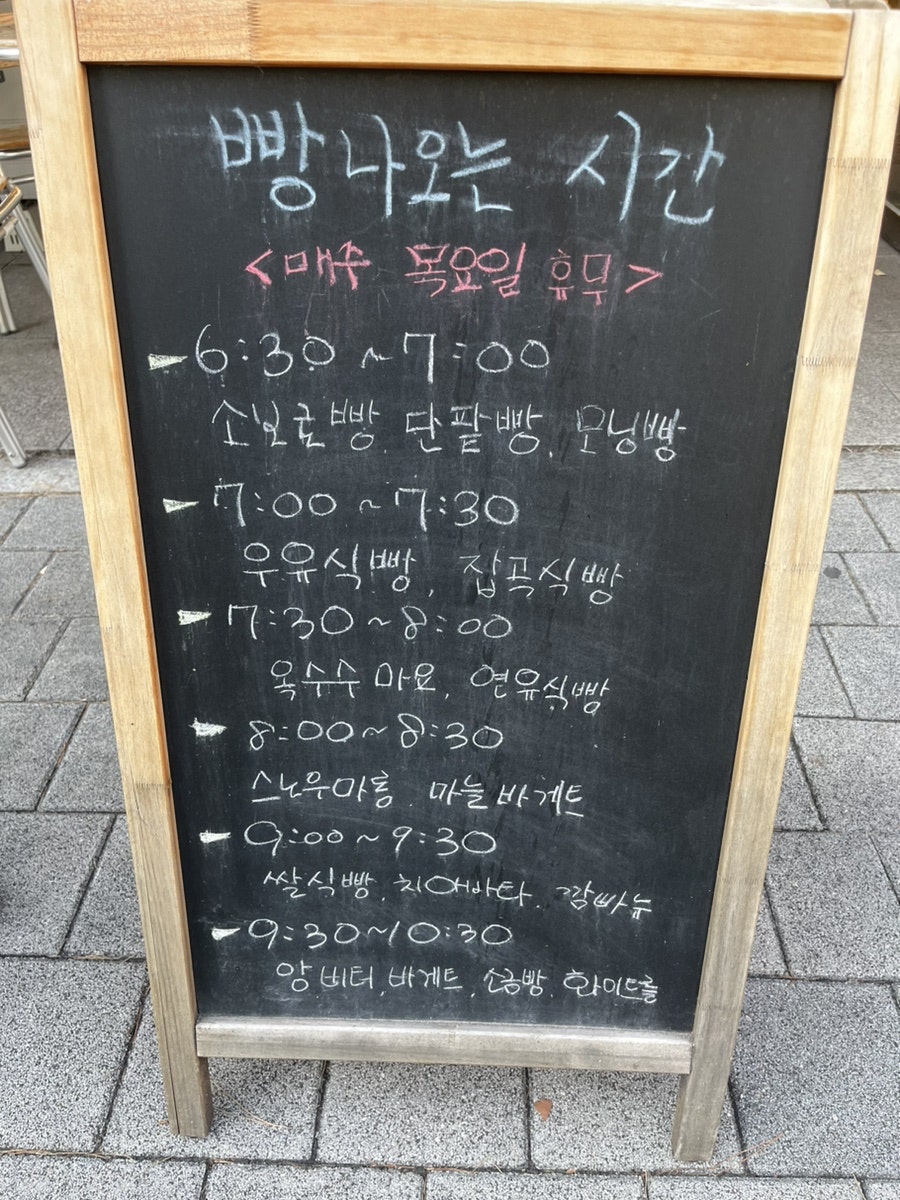 빵 나오는 시간
<매주 목요일 휴무>
6:30 ~ 7:00
소보로빵. 단팥빵. 모닝빵
7:00 ~ 7:30
우유식빵, 잡곡식빵
7:30 ~ 8:00
옥수수 마요, 연유식빵
8:00 ~ 8:30
스노우마롱. 마늘 바게트
9:00 ~ 9:30
쌀식빵, 치아바타. 깜빠뉴
9:30 ~ 10:30
앙 버터, 바게트, 소금빵, 화이트롤